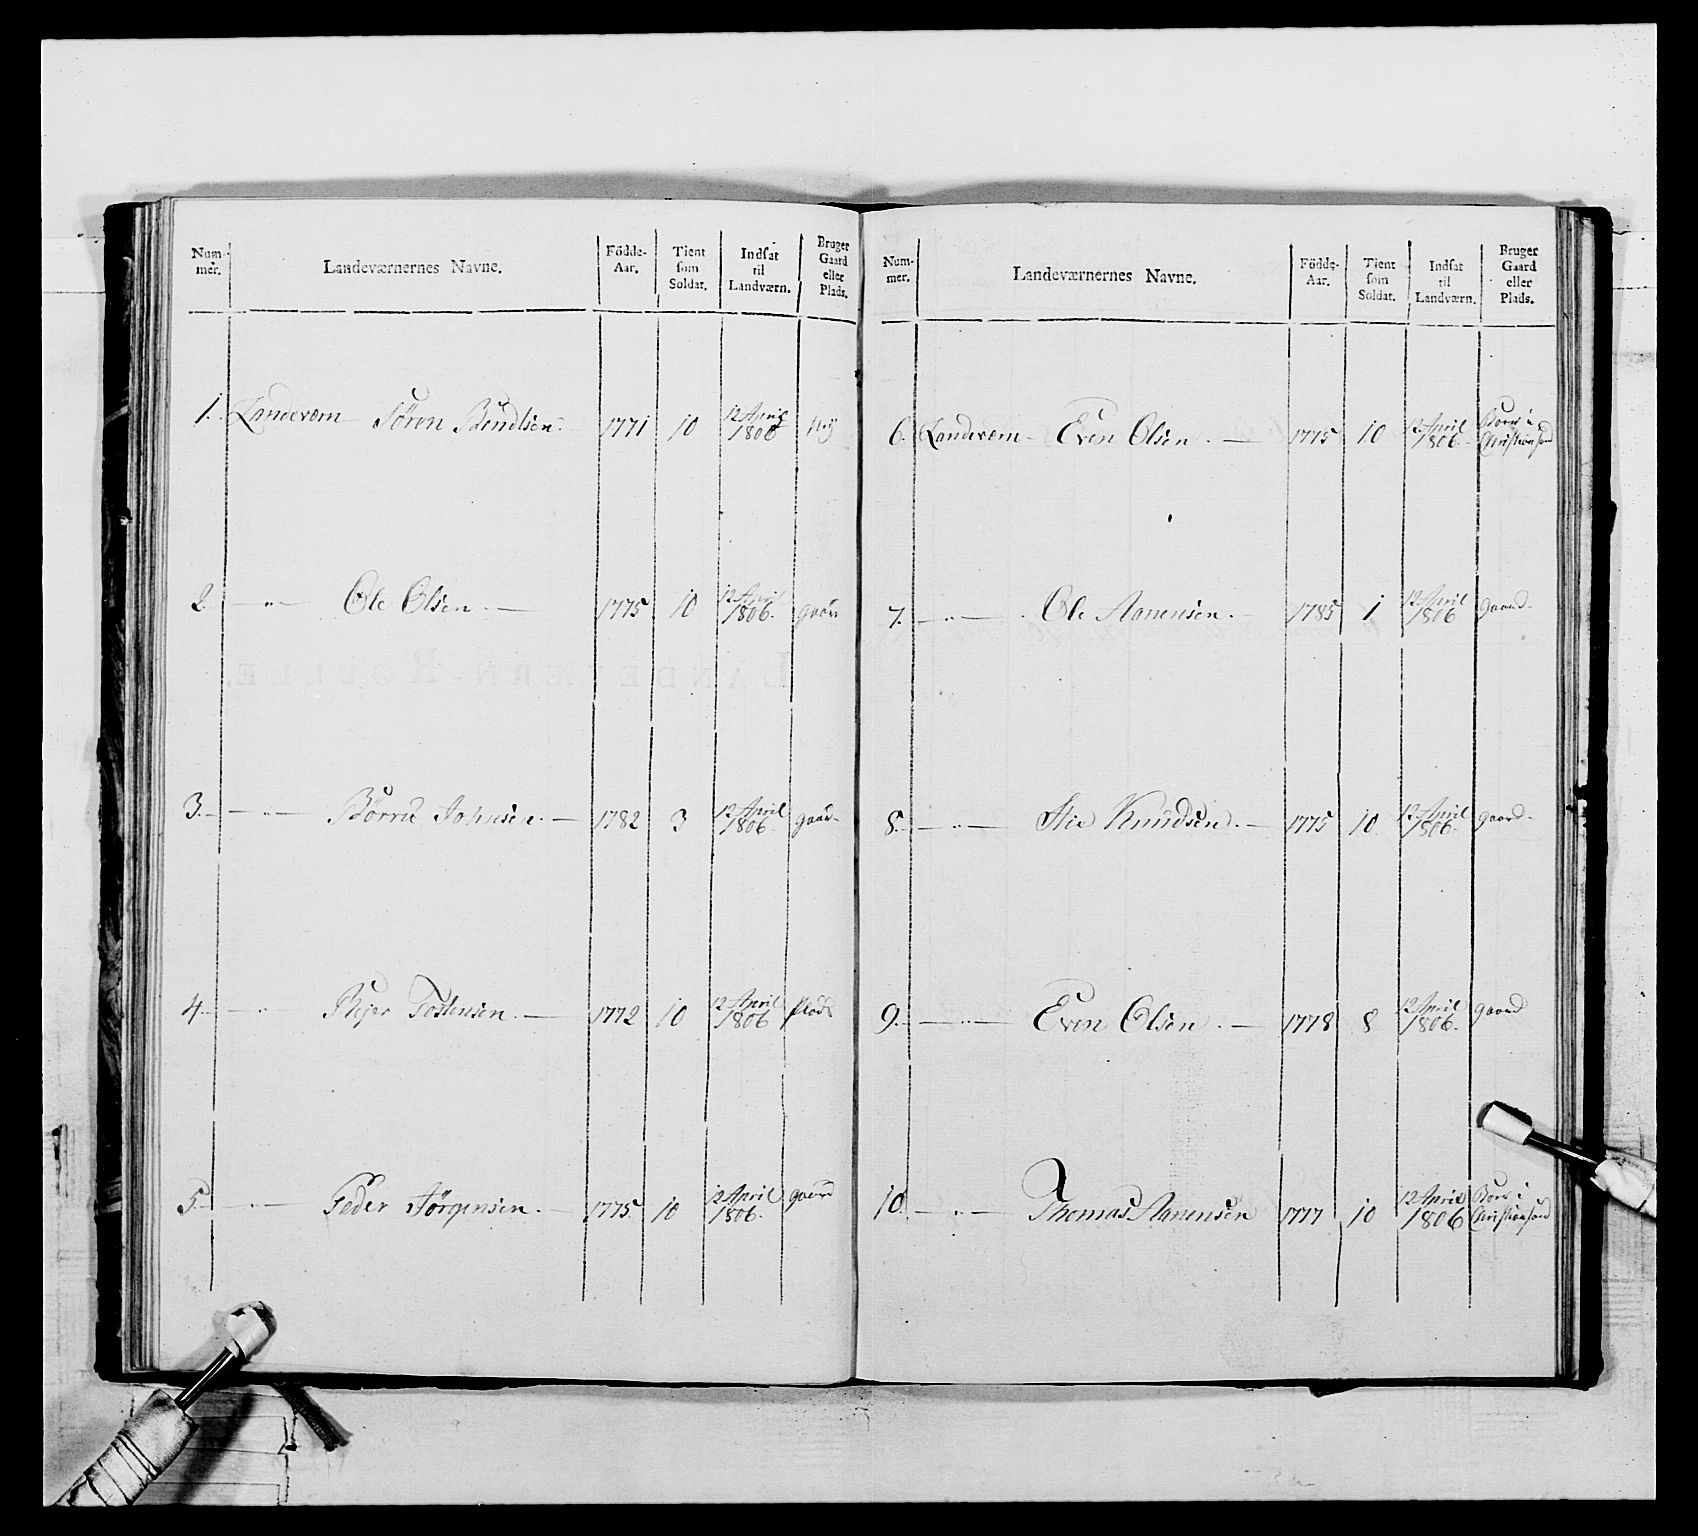 Num-
mer.
Landeværnernes Navne.
Födde-
Aar.
Tient
som
Soldat.
Indsat
til
Landværn.
Bruger
Gaard
eller
Plads.
1. Landeværn Sören Bendtsen. 1771 10 12 April
1806
2. — " — Ole Olsen. — 1775 10 12 April
1806. gaard
3. — " — Börre Johnsen. — 1782 3 12 April
1806. gaard
4. — " — Tostensen. — 1772 10 12 April
1806 Plads
5. — " — Peder Jörgensen. — 1775. 10 12 April
1806. gaard
Num-
mer.
Landeværnernes Navne.
Födde-
Aar.
Tient
som
Soldat.
Indsat
til
Landværn.
Bruger
Gaard
eller
Plads.
6. Landeværn — Even Olsen. — 1775 10 12 April
1806. Boer i
Christiansand
7. — " — Ole Aanensen. — 1785 1 12 April
1806 gaard
8. — " — Knudsen. — 1775 10 12 April
1806. gaard
9. — " — Even Olsen. — 1778 8 12 April
1806. gaard
10. — " — Thomas Aanensen 1777 10 12 April
1806 Boer i
Christiansand
LANDEVÆRN-ROULLE.